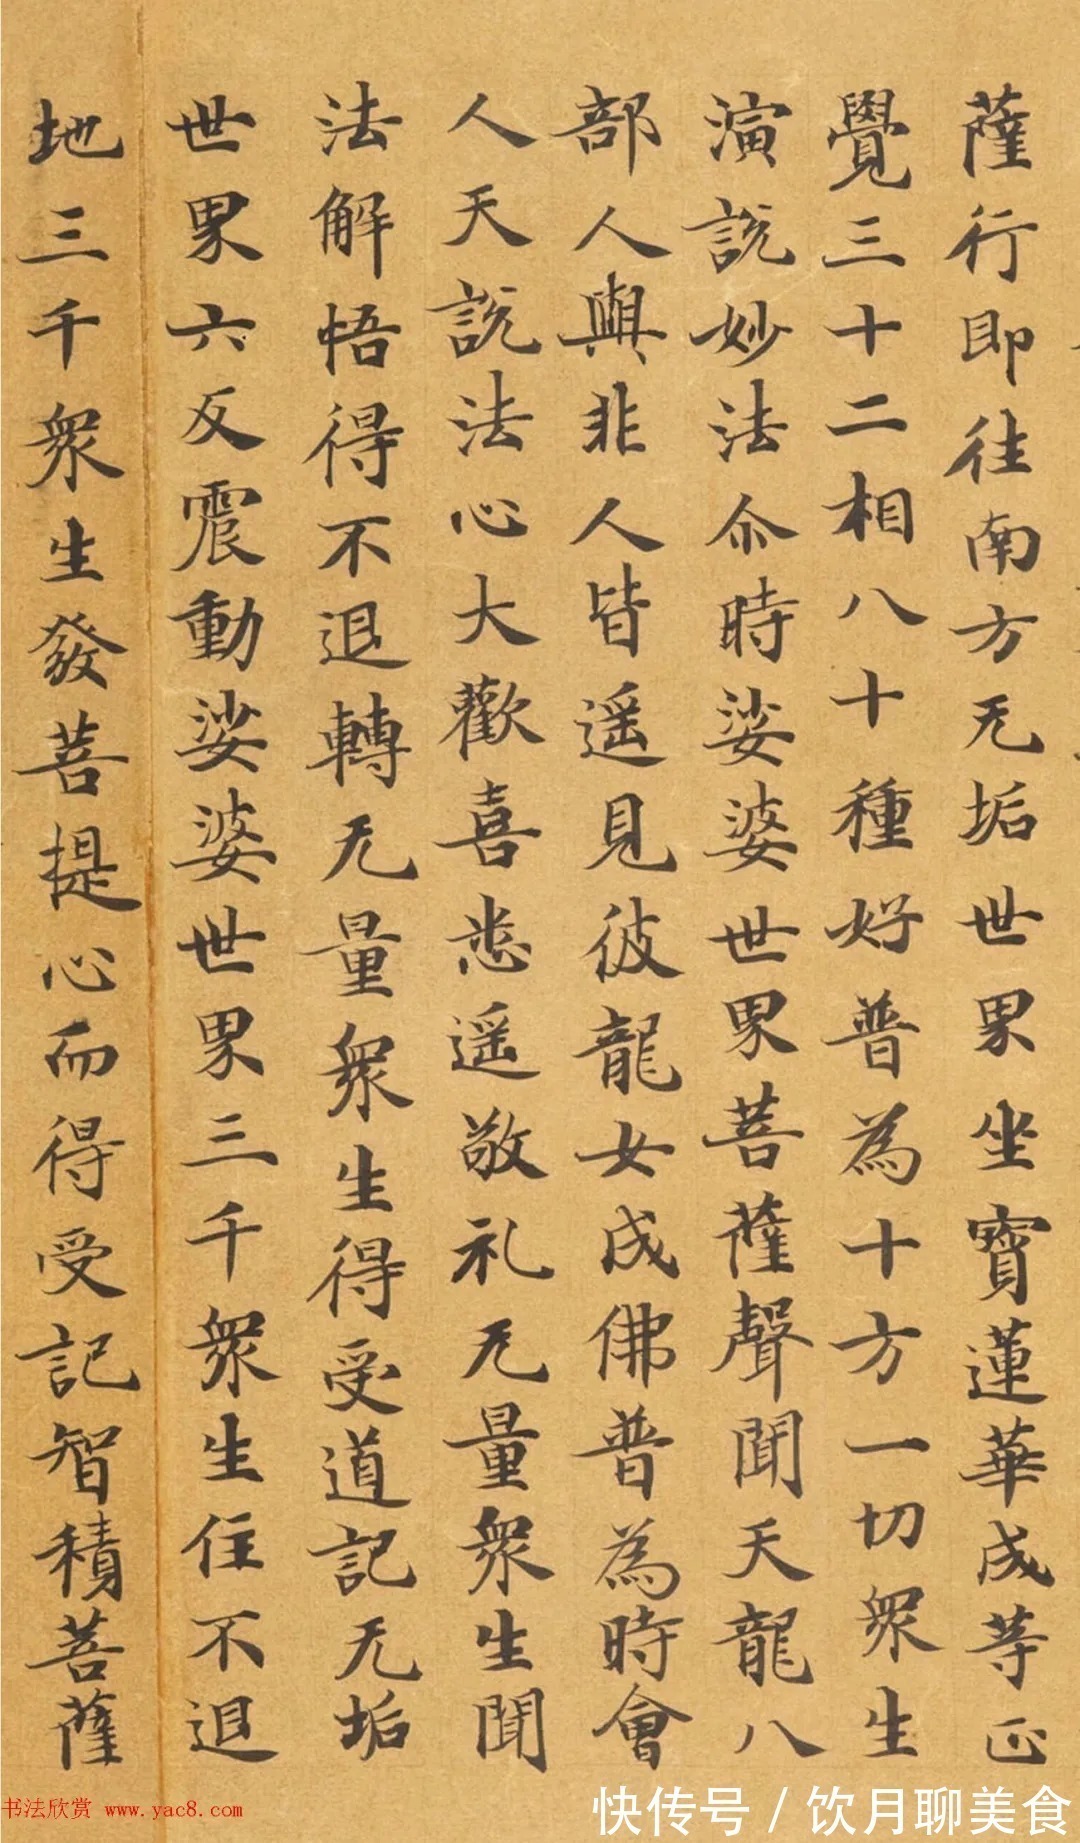 薩行即往南方无垢世界坐寶蓮華成等正
覺三十二相八十種好普為十方一切衆生
演説妙法尒時娑婆世界菩薩聲聞天龍八
部人與非人皆遥見彼龍女成佛普為時會
人天説法心大歡喜悉遥敬礼无量衆生聞
法解悟得不退轉无量衆生得受道記无垢
世界六反震動娑婆世界三千衆生住不退
地三千衆生發菩提心而得受記智積菩薩
书法欣赏 www.yac8.com
快传号/饮月聊美食